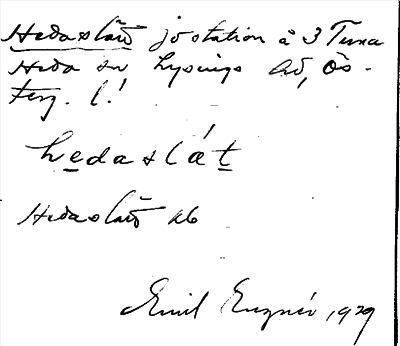 Hedaslät̄ jvstation å 3 Tuna
Heda sn Lysings hd, Ös-
terg. l.!
hedaslǽt
Hedaslät̄ ab
Emil 1929